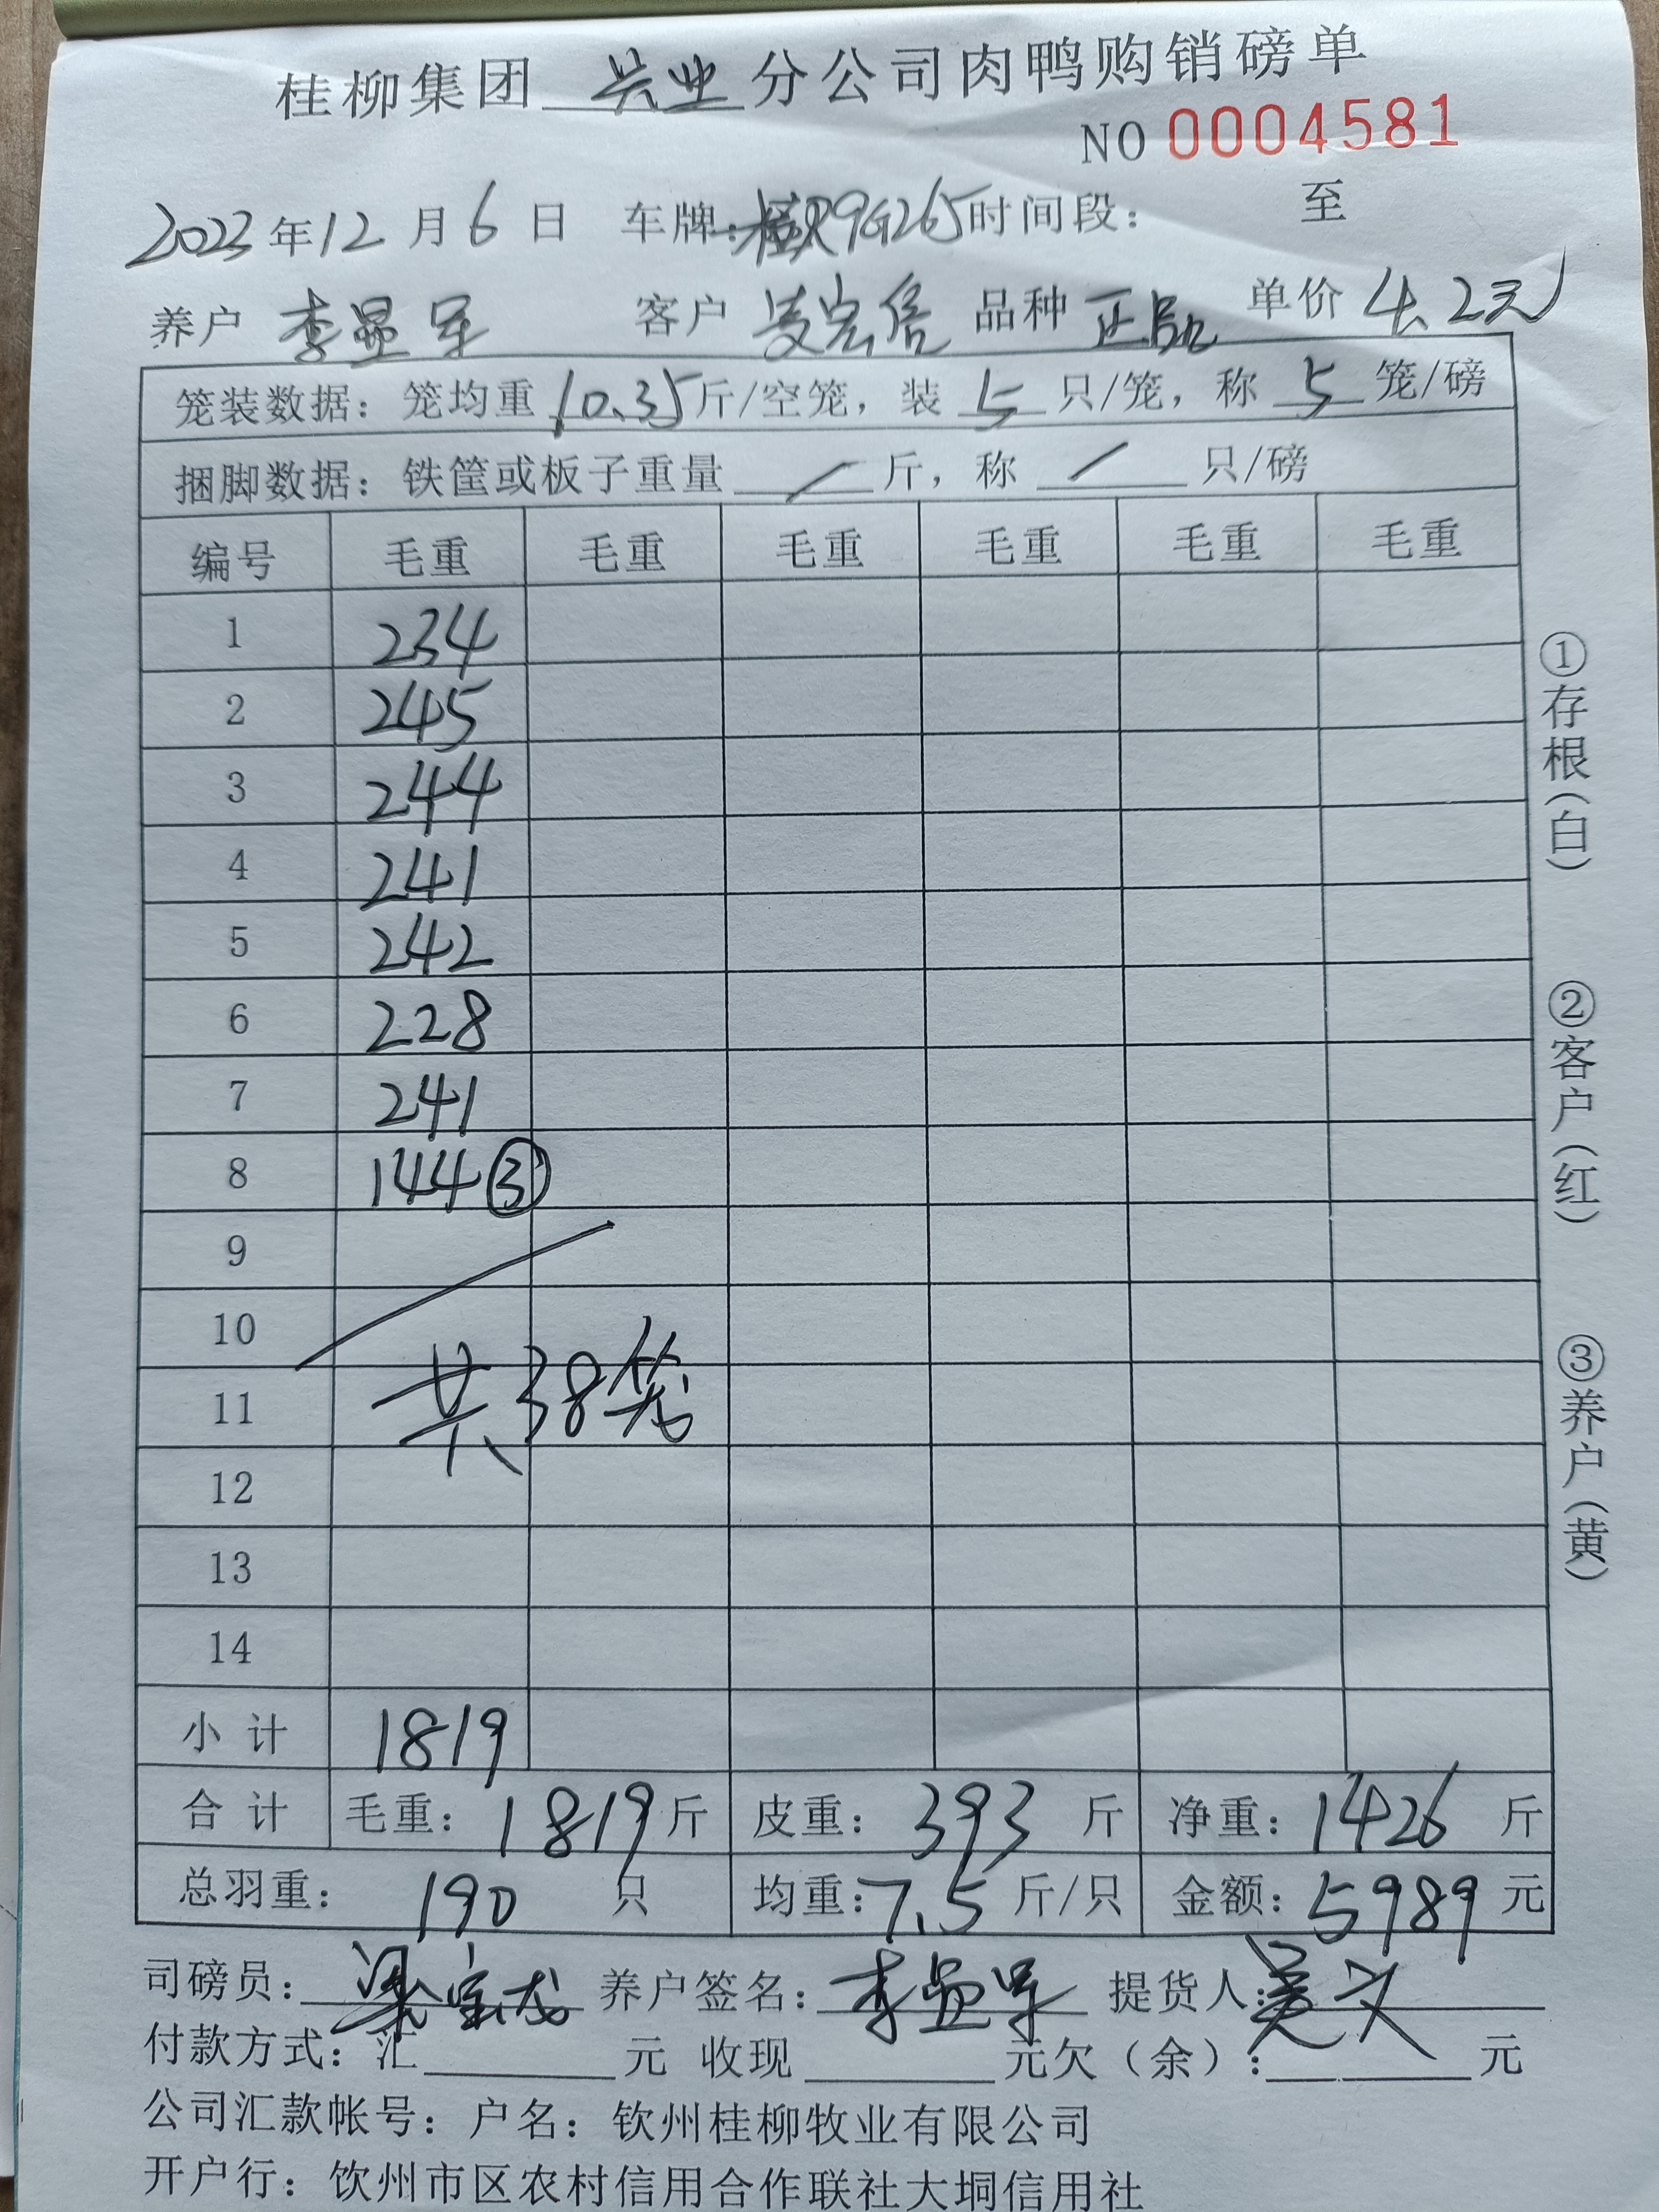 桂柳集团 兴业 分公司肉鸭购销磅单
NO 0004581
2023年12月6日 车牌: R9G265 时间段: 至
养户 李显军 客户 凌宏信 品种 正品 单价 4.2元
笼装数据: 笼均重 10.35 斤/空笼, 装 5 只/笼, 称 5 笼/磅
捆脚数据: 铁筐或板子重量 / 斤, 称 / 只/磅
编号 毛重 毛重 毛重 毛重 毛重 毛重
1 234
2 245
3 244
4 241
5 242
6 228
7 241
8 144 ③
9
10
11 共38笼
12
13
14
小计 1819
合计 毛重: 1819 斤 皮重: 393 斤 净重: 1426 斤
总羽重: 190 只 均重: 7.5 斤/只 金额: 5989 元
司磅员: 养户签名: 李显军 提货人:
付款方式: 汇 元 收现 元欠(余): 元
公司汇款帐号: 户名: 钦州桂柳牧业有限公司
开户行: 钦州市区农村信用合作联社大垌信用社
①存根(白)
②客户(红)
③养户(黄)